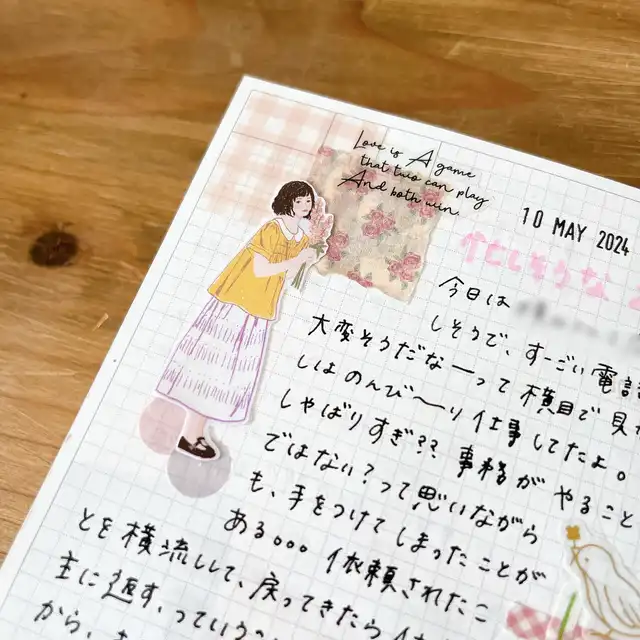 Love is A game
that two can play
And both win.
10 MAY 2024
忙しそうな
今日は
しそうで、すーごい電話
大変そうだなーって横目で見
しはのんび〜り仕事してたよ。
しゃばりすぎ?? 事務がやること
ではない?って思いながら
も、手をつけてしまったことが
ある。。。依頼されたこ
とを横流しして、戻ってきたら依
主に返す、っていう
から、